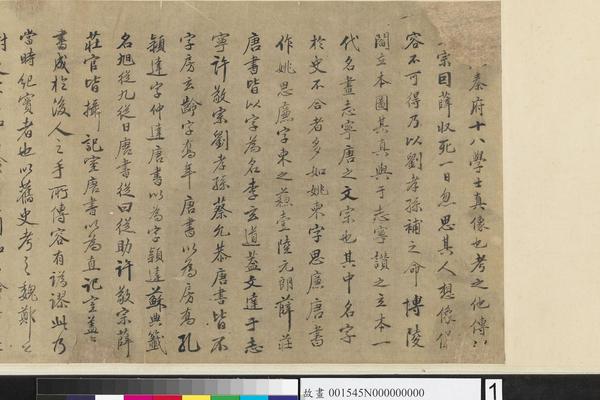 秦府十八學士真像也考之他傳
宗曰薛收死一日忽思其人想像
容不可得乃以劉孝孫補之命博陵
閻立本圖其真與于志寧讚之立本一
代名畫志寧唐之文宗也其中名字
於史不合者多如姚柬字思廉唐書
作姚思廉字柬之蘇壹陸元朗薛莊
唐書皆以字為名李玄道蓋文達于志
寧許敬宗劉孝孫蔡允恭唐書皆不
字房玄齡字喬年唐書以為房喬孔
穎達字仲達唐書以為字穎達蘇典籤
名旭從九從日唐書從曰從助許敬宗薛
莊官皆攝記室唐書以為直記室蓋
書成於後人之手所傳容有訛謬此乃
當時紀實者也以舊史考之魏鄭公
故畫 001545N000000000
1